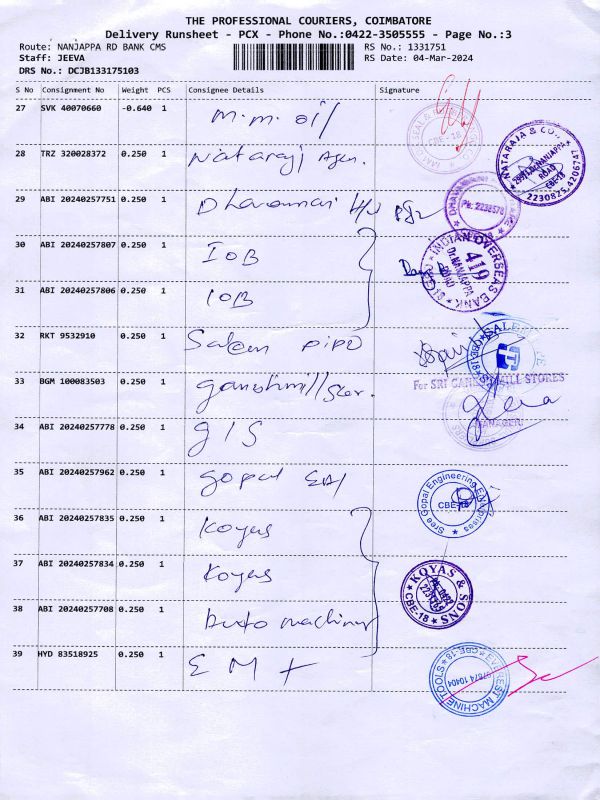 THE PROFESSIONAL COURIERS, COIMBATORE
Delivery Runsheet - PCX - Phone No.:0422-3505555 - Page No.:3
Route: NANJAPPA RD BANK CMS
RS No.: 1331751
Staff: JEEVA
RS Date: 04-Mar-2024
DRS No.: DCJB133175103
S No Consignment No Weight PCS Consignee Details Signature
27 SVK 40070660 -0.640 1 m.m. oil
CBE-18
28 TRZ 320028372 0.250 1 Nataraj Agen.
NATARAJA & CO.,
ROAD
CBE-18
29 ABI 20240257751 0.250 1
30 ABI 20240257807 0.250 1 IOB
INDIAN OVERSEAS BANK
419
Dr.NANJAPPA
ROAD
31 ABI 20240257806 0.250 1 IOB
32 RKT 9532910 0.250 1 Salem pipe
33 BGM 100083503 0.250 1
For SRI GANESH MILL STORES
MANAGER
34 ABI 20240257778 0.250 1 GIS
35 ABI 20240257962 0.250 1 Gopal
Sree Gopal Engineering Enterprises
CBE-18
36 ABI 20240257835 0.250 1 Koyas
37 ABI 20240257834 0.250 1 Koyas
KOYAS & SONS
CBE-18
38 ABI 20240257708 0.250 1 Auto machinery
39 HYD 83518925 0.250 1 E M T
EVEREST MACHINE TOOLS
CBE-18